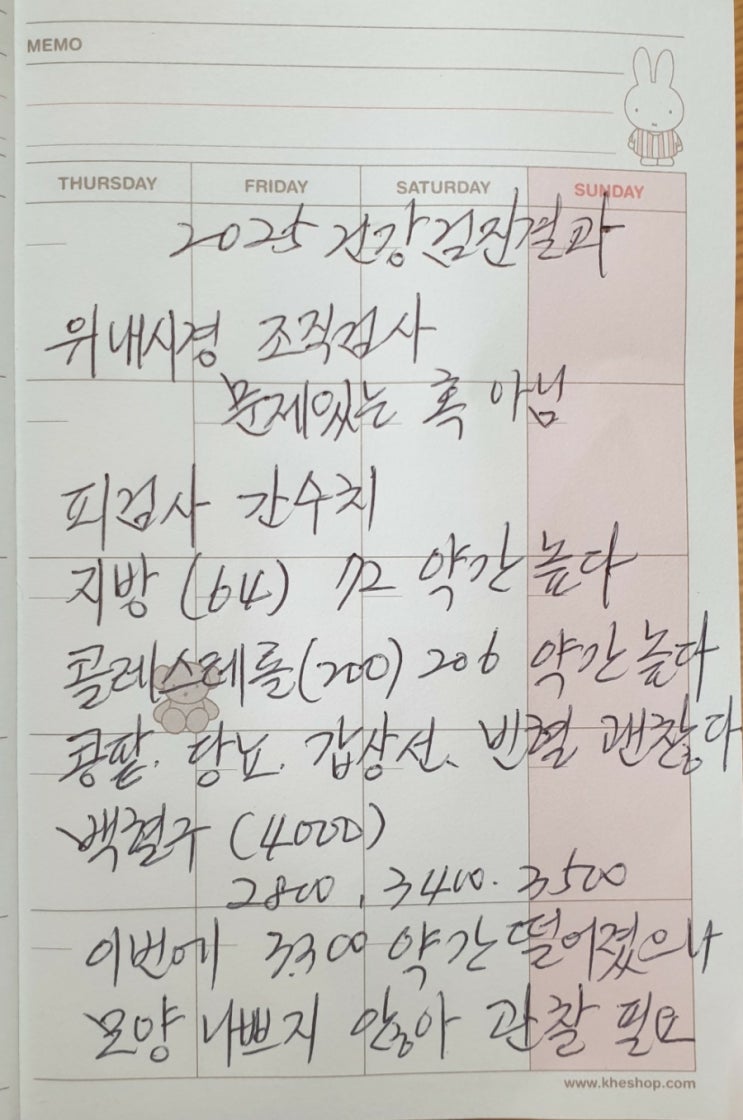 MEMO
THURSDAY FRIDAY SATURDAY SUNDAY
2025 건강검진결과
위내시경 조직검사
문제있는 혹 아님
피검사 간수치
지방 (64) 72 약간 높다
콜레스테롤(200) 206 약간 높다
콩팥. 당뇨. 갑상선. 빈혈 괜찮다
백혈구 (4000)
2800, 3400. 3500
이번에 3300 약간 떨어졌으나
모양 나쁘지 않아 관찰 필요
www.kheshop.com